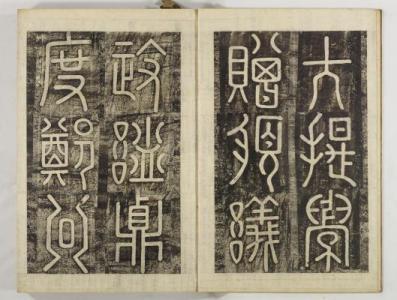 大提學
贈領議
政謚貞
度鄭公